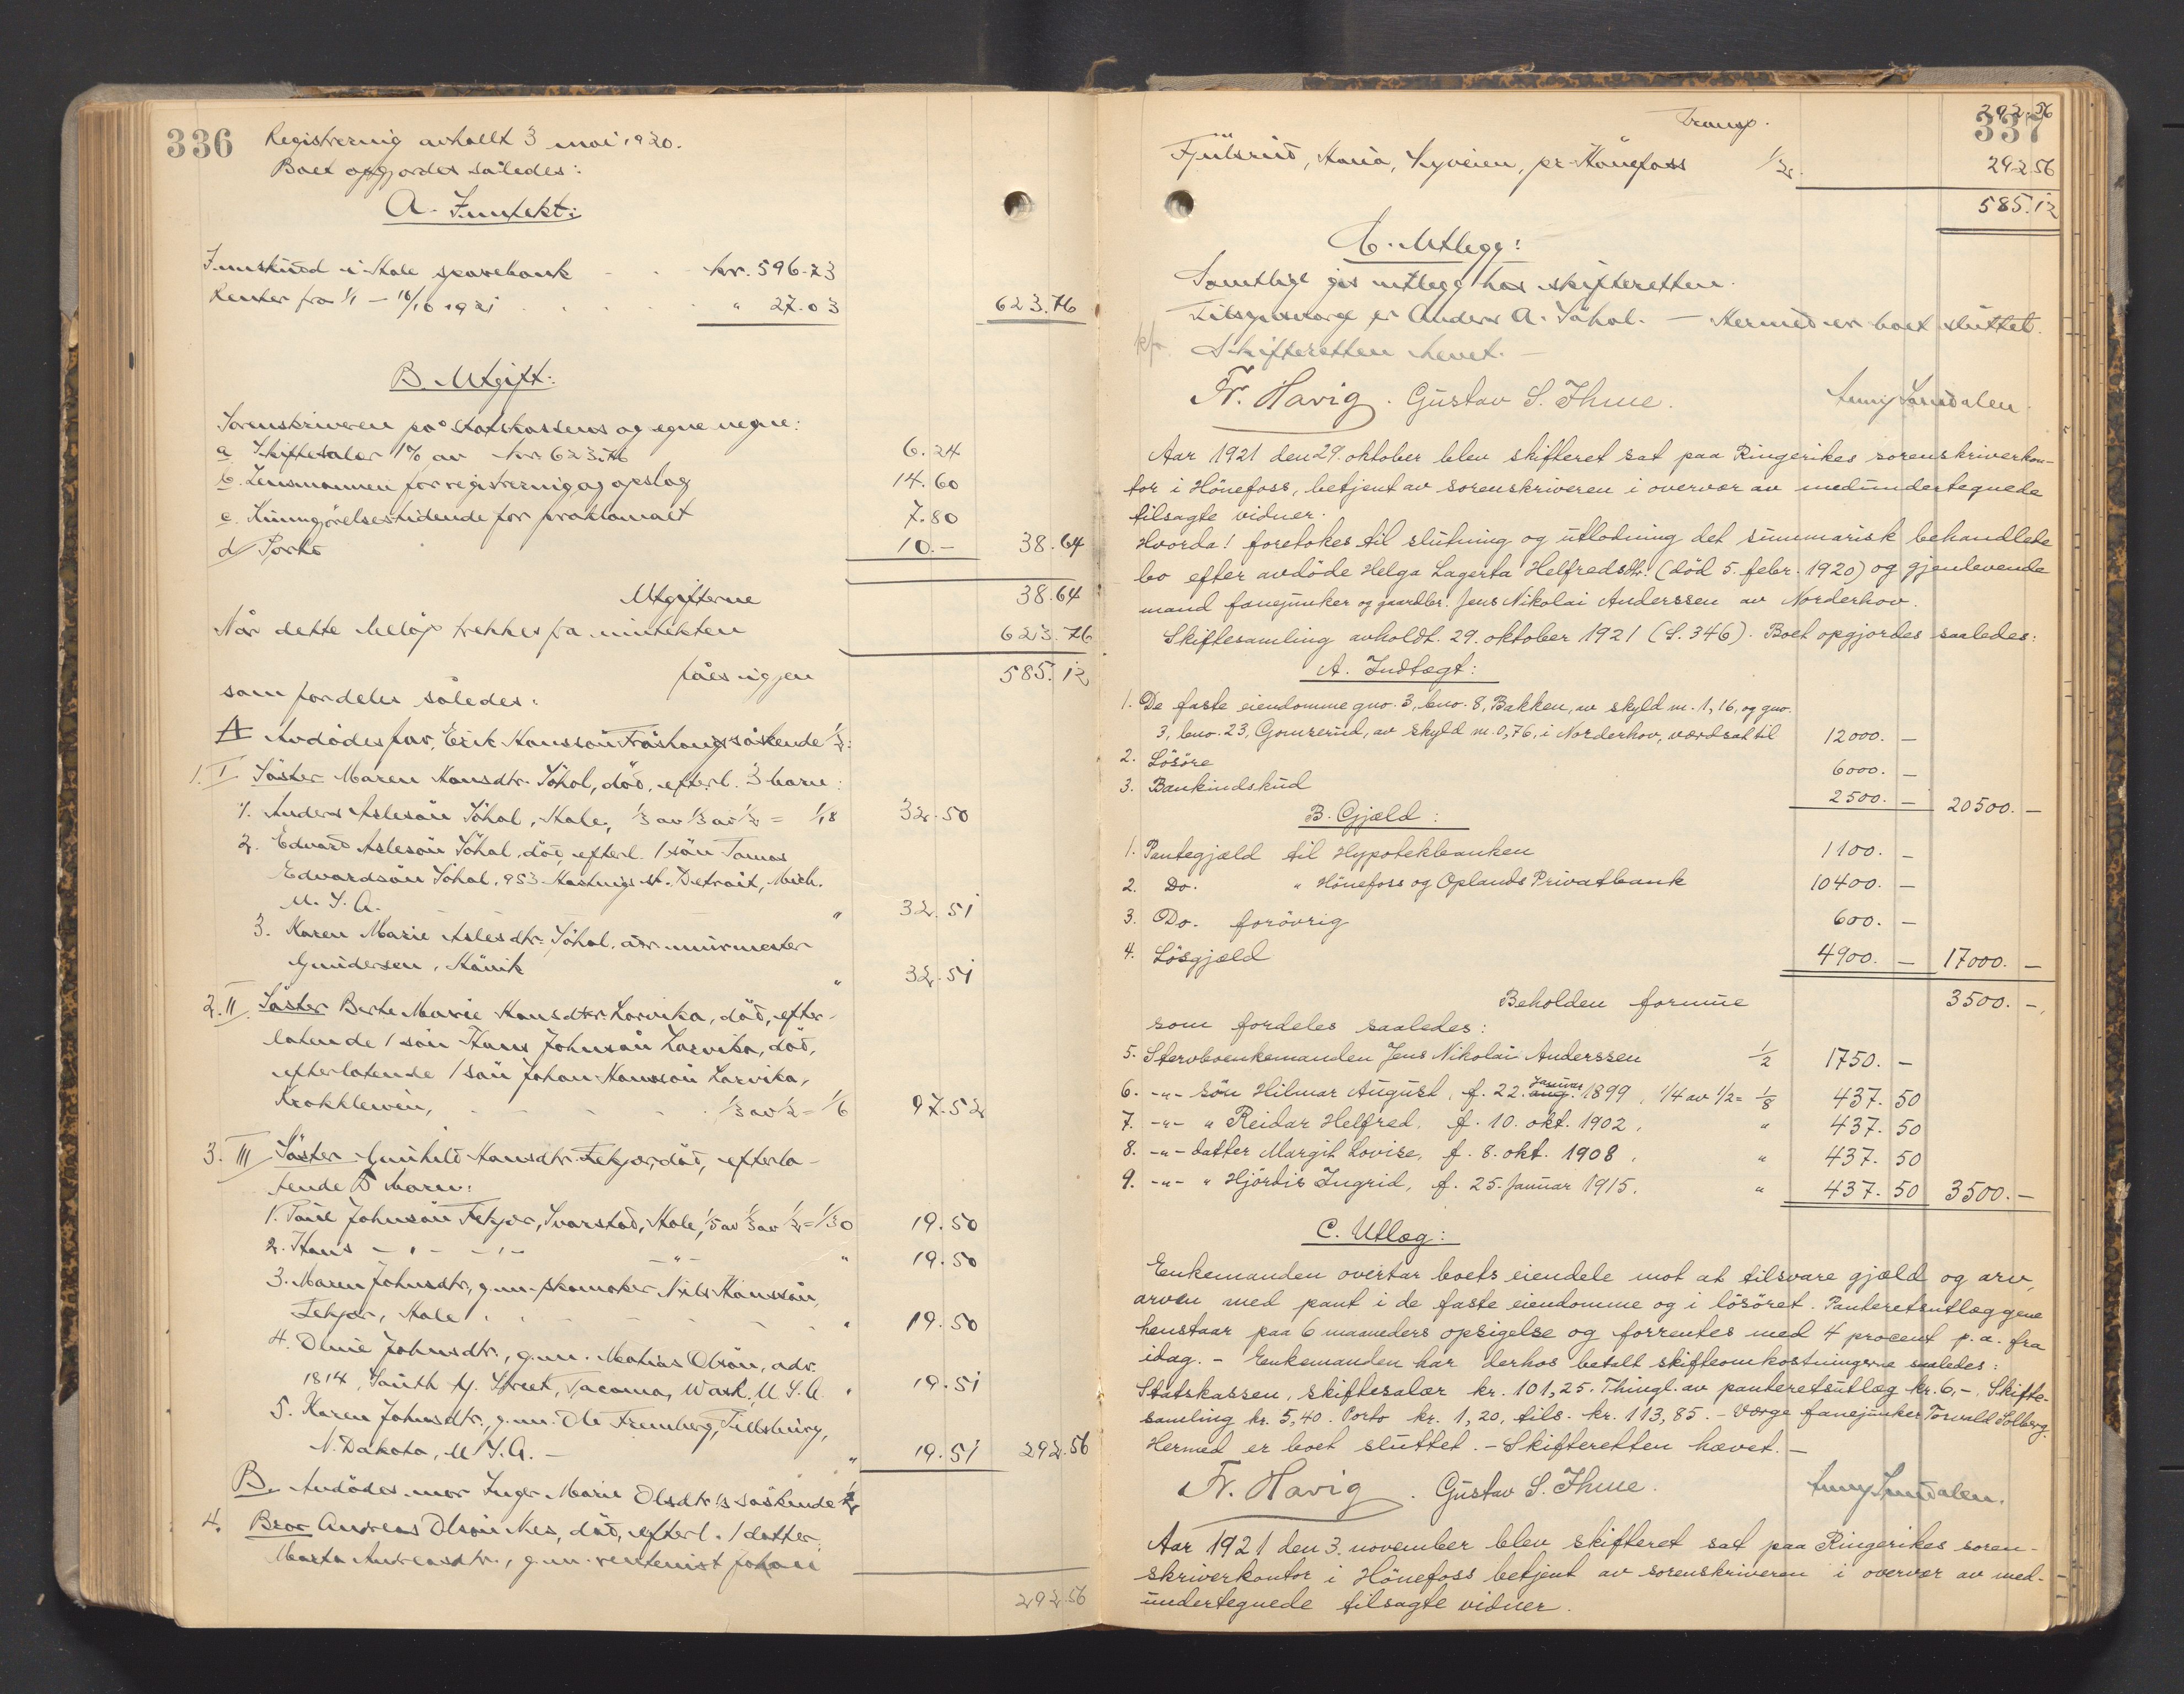 336
Registrering avholdt 3 mai 1920.
Boet opgjordes således:
A. Inntekt:
Innskudd i Hole sparebank kr. 596.73
Renter fra 1/1 - 10/10 1921 " 27.03 623.76
B. Utgift:
Sorenskriveren på statskassens og egne vegne:
a Skiftesalær 1% av kr. 623.76 6.24
b. Lensmannen for registrering og opslag 14.60
c. Kunngjørelsestidende for proklamaet 7.80
d/ Porto 10.- 38.64
Utgifterne 38.64
Når dette beløp trekkes fra inntekten 623.76
fåes igjen 585.12
som fordeles således:
A Avdødes far, Erik Hanssøn søskende 1/2:
1. I Søster Maren Hansdtr. Søhol, død, efterl. 3 barn:
1. Anders Aslesøn Søhol, Hole, 1/3 av 1/3 av 1/2 = 1/18 32.50
2. Edvard Aslesøn Søhol, død, efterl. 1 søn Tomas
Edvardsøn Søhol. 953 Hastings st. Detroit, Mich.
U. S. A. " 32.51
3. Karen Marie Aslesdtr. Søhol, adr. murmester
Gundersen, Høvik " 32.51
2. II. Søster Berte Marie Hansdtr. Larvika, død, efter-
latende 1 søn Hans Johnsøn Larvika, død,
efterlatende 1 søn Johan Hanssøn Larvika,
Krokkleven, 1/3 av 1/2 = 1/6 97.52
3. III Søster Gunhild Hansdtr. Fekjær, død, efterla-
tende 5 barn:
1. Paul Johnsøn Fekjær, Svarstad, Hole, 1/5 av 1/3 av 1/2 = 1/30 19.50
2. Hans - " - - " - - " - " 19.50
3. Maren Johnsdtr., g.m. skomaker Nils Hanssøn,
Fekjær, Hole " 19.50
4. Oline Johnsdtr., g.m. Mathias Olsøn, adr.
1814, South Y. Street, Tacoma, Wash. U.S.A. " 19.51
5. Karen Johnsdtr., g.m. Ole Fremberg, Tillsbury,
N. Dakota, U.S.A. - " 19.51 292.56
B. Avdødes mor Inger Marie Olsdtr.'s søskende 1/2
4. Bror Andreas Olsøn Nes, død, efterl. 1 datter,
Marta Andreasdtr., g.m. rentenist Johan
292.56
337
Transp. 292.56
Fjulsrud, Maria, Hyveien, pr. Hønefoss 1/2. 292.56
585.12
C. Utlegg:
Samtlige gis utlegg hos skifteretten.
Tilsynsverge er Anders A. Søhol. - Hermed er boet sluttet.
Skifteretten hevet. -
Fr. Havig. Gustav S. Thue. Anny Sundalen.
Aar 1921 den 29. oktober blev skifteret sat paa Ringerikes sorenskriverkon-
tor i Hönefoss, betjent av sorenskriveren i overvær av medundertegnede
tilsagte vidner.
Hvorda! foretokes til slutning og utlodning det summarisk behandlede
bo efter avdöde Helga Lagerta Helfredsdtr. (död 5. febr. 1920) og gjenlevende
mand fanejunker og gaardbr. Jens Nikolai Anderssen av Norderhov.
Skiftesamling avholdt. 29. oktober 1921 (S. 346). Boet opgjordes saaledes:
A. Indtægt:
1. De faste eiendomme gno. 3, bno. 8, Bakken, av skyld m. 1,16, og gno.
3, bno. 23, Gomrerud, av skyld m. 0,76, i Norderhov, værdsat til 12000. -
2. Lösöre 6000. -
3. Bankindskud 2500. - 20500. -
B. Gjæld:
1. Pantegjæld til Hypotekbanken 1100. -
2. Do. " Hönefoss og Oplands Privatbank 10400. -
3. Do. forövrig 600. -
4. Lösgjæld 4900. - 17000. -
Beholden formue 3500. -
som fordeles saaledes:
5. Stervboenkemanden Jens Nikolai Anderssen 1/2 1750. -
6. -"- sön Hilmar August, f. 22. aug. Januar 1899, 1/4 av 1/2 = 1/8 437.50
7. -"- " Reidar Helfred, f. 10. okt. 1902, " 437.50
8. -"- datter Margit Lovise, f. 8. okt. 1908, " 437.50
9. -"- " Hjördis Ingrid, f. 25. Januar 1915. " 437.50 3500. -
C. Utlæg:
Enkemanden overtar boets eiendele mot at tilsvare gjæld og arv,
arven med pant i de faste eiendomme og i lösöret. Panteretsutlæggene
henstaar paa 6 maaneders opsigelse og forrentes med 4 procent p.a. fra
idag. - Enkemanden har derhos betalt skifteomkostningerne saaledes:
Statskassen, skiftesalær kr. 101,25. Thingl. av panteretsutlæg kr. 6,-. Skifte-
samling kr. 5,40. Porto kr. 1,20, tils. kr. 113,85. - Værge fanejunker Torvald Solberg.
Hermed er boet sluttet. - Skifteretten hævet. -
Fr. Havig. Gustav S. Thue. Anny Sundalen.
Aar 1921 den 3. november blev skifteret sat paa Ringerikes soren-
skriverkontor i Hönefoss betjent av sorenskriveren i overvær av med-
undertegnede tilsagte vidner.